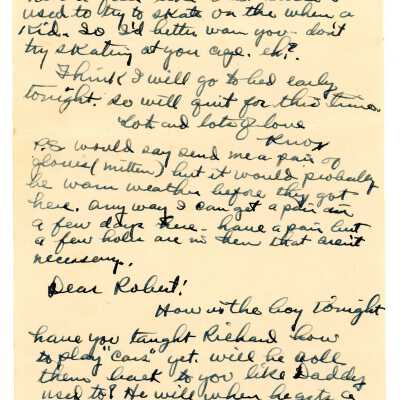 used to try to skate on the when a
Kid. So I'd better warn you - don't
try skating at your age. eh?
Think I will go to bed early
tonight. So will quit for this time
Lots and lots of love
Knox
P.S. would say send me a pair of
gloves (mitten) but it would probably
be warm weather before they got
here. any way I can get a pair in
a few days here - have a pair but
a few holes are in them that aren't
necessary..
Dear Robert!
How is the boy tonight
have you taught Richard how
to play "cars" yet. will he roll
them back to you like Daddy
used to? He will when he gets a